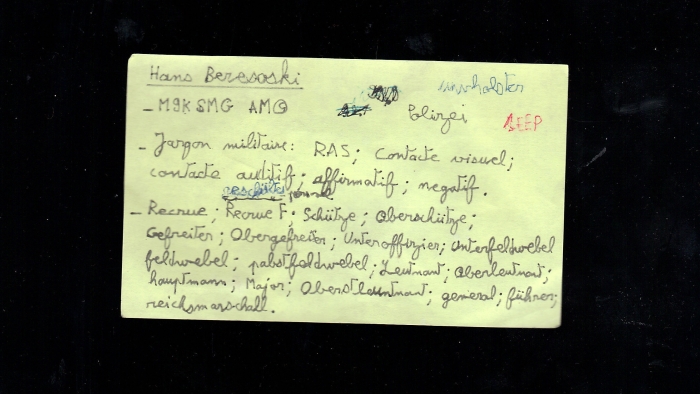 Hans Beresoski
- M9K SMG AMO
Polizei
BEEP
- Jargon militaire: RAS; contacte visuel;
contacte auditif; affirmatif; negatif.
- Recrue; Recrue F; Schütze; Oberschütze;
Gefreiter; Obergefreiter; Unteroffizier; Unterfeldwebel
feldwebel; pabstfeldwebel; Leutnant; Oberleutnant;
hauptmann; Major; Oberstleutnant; general; führer;
reichsmarschall.